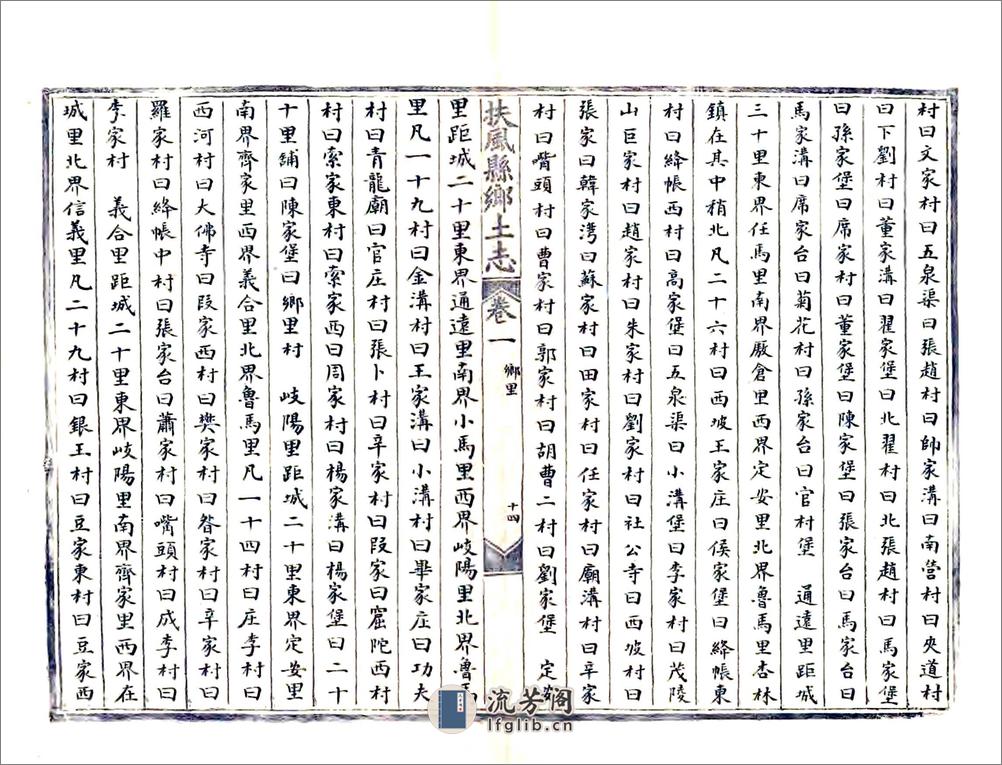 村曰文家村曰五泉渠曰張趙村曰帥家溝曰南营村曰央道村
曰下劉村曰董家溝曰翟家堡曰北翟村曰北張趙村曰馬家堡
曰孫家堡曰席家村曰董家堡曰陳家堡曰張家台曰馬家台曰
馬家溝曰席家台曰菊花村曰孫家台曰官村堡 通遠里距城
三十里東界任馬里南界厫倉里西界定安里北界魯馬里杏林
鎮在其中稍北凡二十六村曰西坡王家庄曰侯家堡曰絳帳東
村曰絳帳西村曰高家堡曰五泉渠曰小溝堡曰李家村曰茂陵
山巨家村曰趙家村曰朱家村曰劉家村曰社公寺曰西坡村曰
張家曰韓家灣曰蘇家村曰田家村曰任家村曰廟溝村曰辛家
村曰嘴頭村曰曹家村曰郭家村曰胡曹二村曰劉家堡 定安
扶風縣鄉土志 卷一 鄉里 十四
里距城二十里東界通遠里南界小馬里西界岐陽里北界魯馬
里凡一十九村曰金溝村曰王家溝曰小溝村曰畢家庄曰功夫
村曰青龍廟曰官庄村曰張卜村曰辛家村曰段家曰窟陀西村
村曰索家東村曰索家西曰周家村曰楊家溝曰楊家堡曰二十
十里鋪曰陳家堡曰鄉里村 岐陽里距城二十里東界定安里
南界齊家里西界義合里北界魯馬里凡一十四村曰庄李村曰
西河村曰大佛寺曰段家西村曰樊家村曰昝家村曰辛家村曰
羅家村曰絳帳中村曰張家台曰蕭家村曰嘴頭村曰成李村曰
李家村 義合里距城二十里東界岐陽里南界齊家里西界在
城里北界信義里凡二十九村曰銀王村曰豆家東村曰豆家西
流芳阁
lfglib.cn